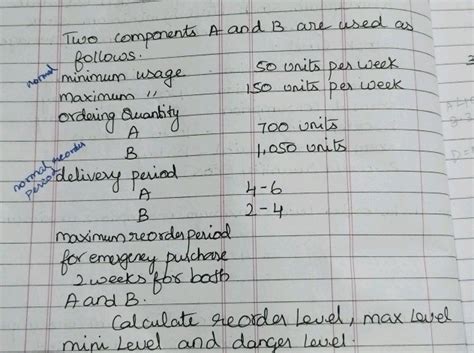 Two components A and B are used as
follows.
normal minimum usage 50 units per week
maximum " 150 units per week
ordering Quantity
A 700 units
B 1,050 units
normal reorder period
delivery period
A 4-6
B 2-4
maximum reorder period
for emergency purchase
2 weeks for both
A and B.
Calculate reorder Level, max Level
mini Level and danger Level.